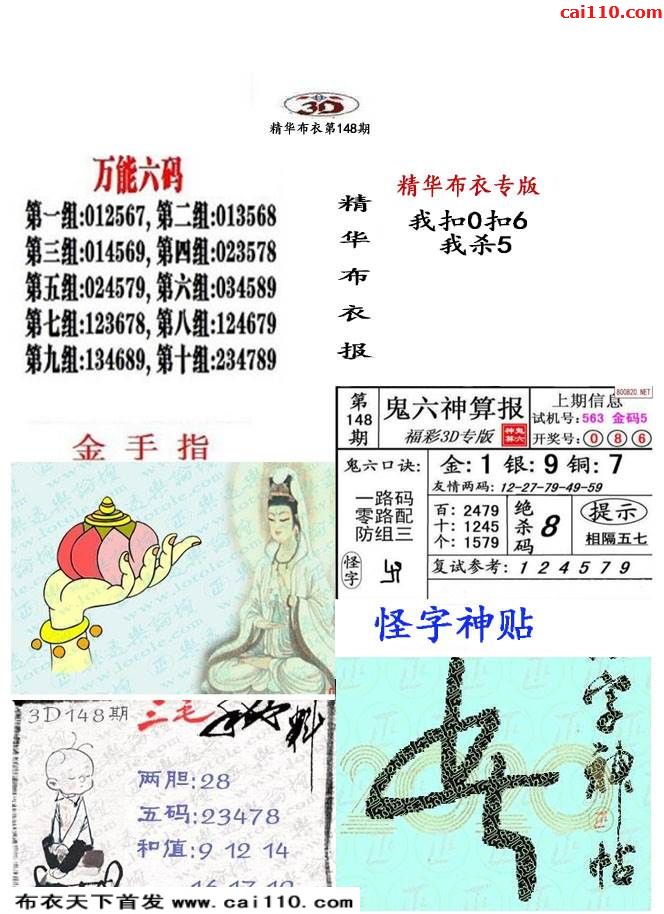 cai110.com
3D
精华布衣第148期
万能六码
第一组:012567, 第二组:013568
第三组:014569, 第四组:023578
第五组:024579, 第六组:034589
第七组:123678, 第八组:124679
第九组:134689, 第十组:234789
精华布衣报
精华布衣专版
我扣0扣6
我杀5
800820.NET
第148期
鬼六神算报
福彩3D专版
上期信息
试机号:563 金码5
开奖号:0 8 6
鬼六口诀:
一路码
零路配
防组三
怪字
卐
金:1 银:9 铜:7
友情两码:12-27-79-49-59
百:2479
十:1245
个:1579
绝杀码
8
提示
相隔五七
复试参考:1 2 4 5 7 9
金手指
怪字神贴
字神帖
3D148期
三毛
料
两胆:28
五码:23478
和值:9 12 14
布衣天下首发 www.cai110.com